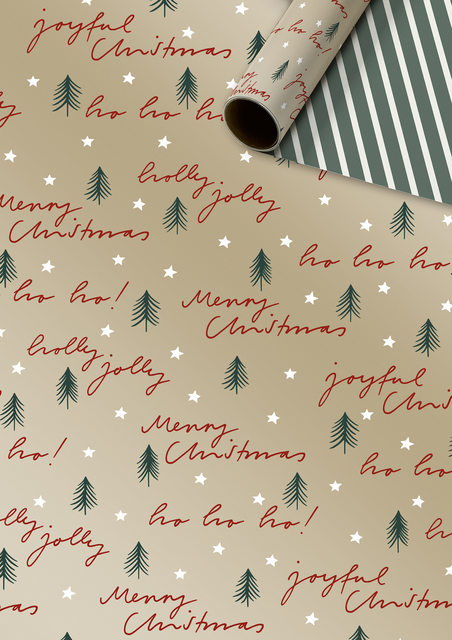 joyful
Christmas
ho ho ho!
ho ho h
holly
jolly
Merry
Christmas
ho ho ho
ho ho!
Merry
Christmas
holly
jolly
joyful
Chris
Merry
Christmas
ho!
ho ho
ho ho ho!
h
olly
jolly
joyful
Christm
Merry
Christmas
as